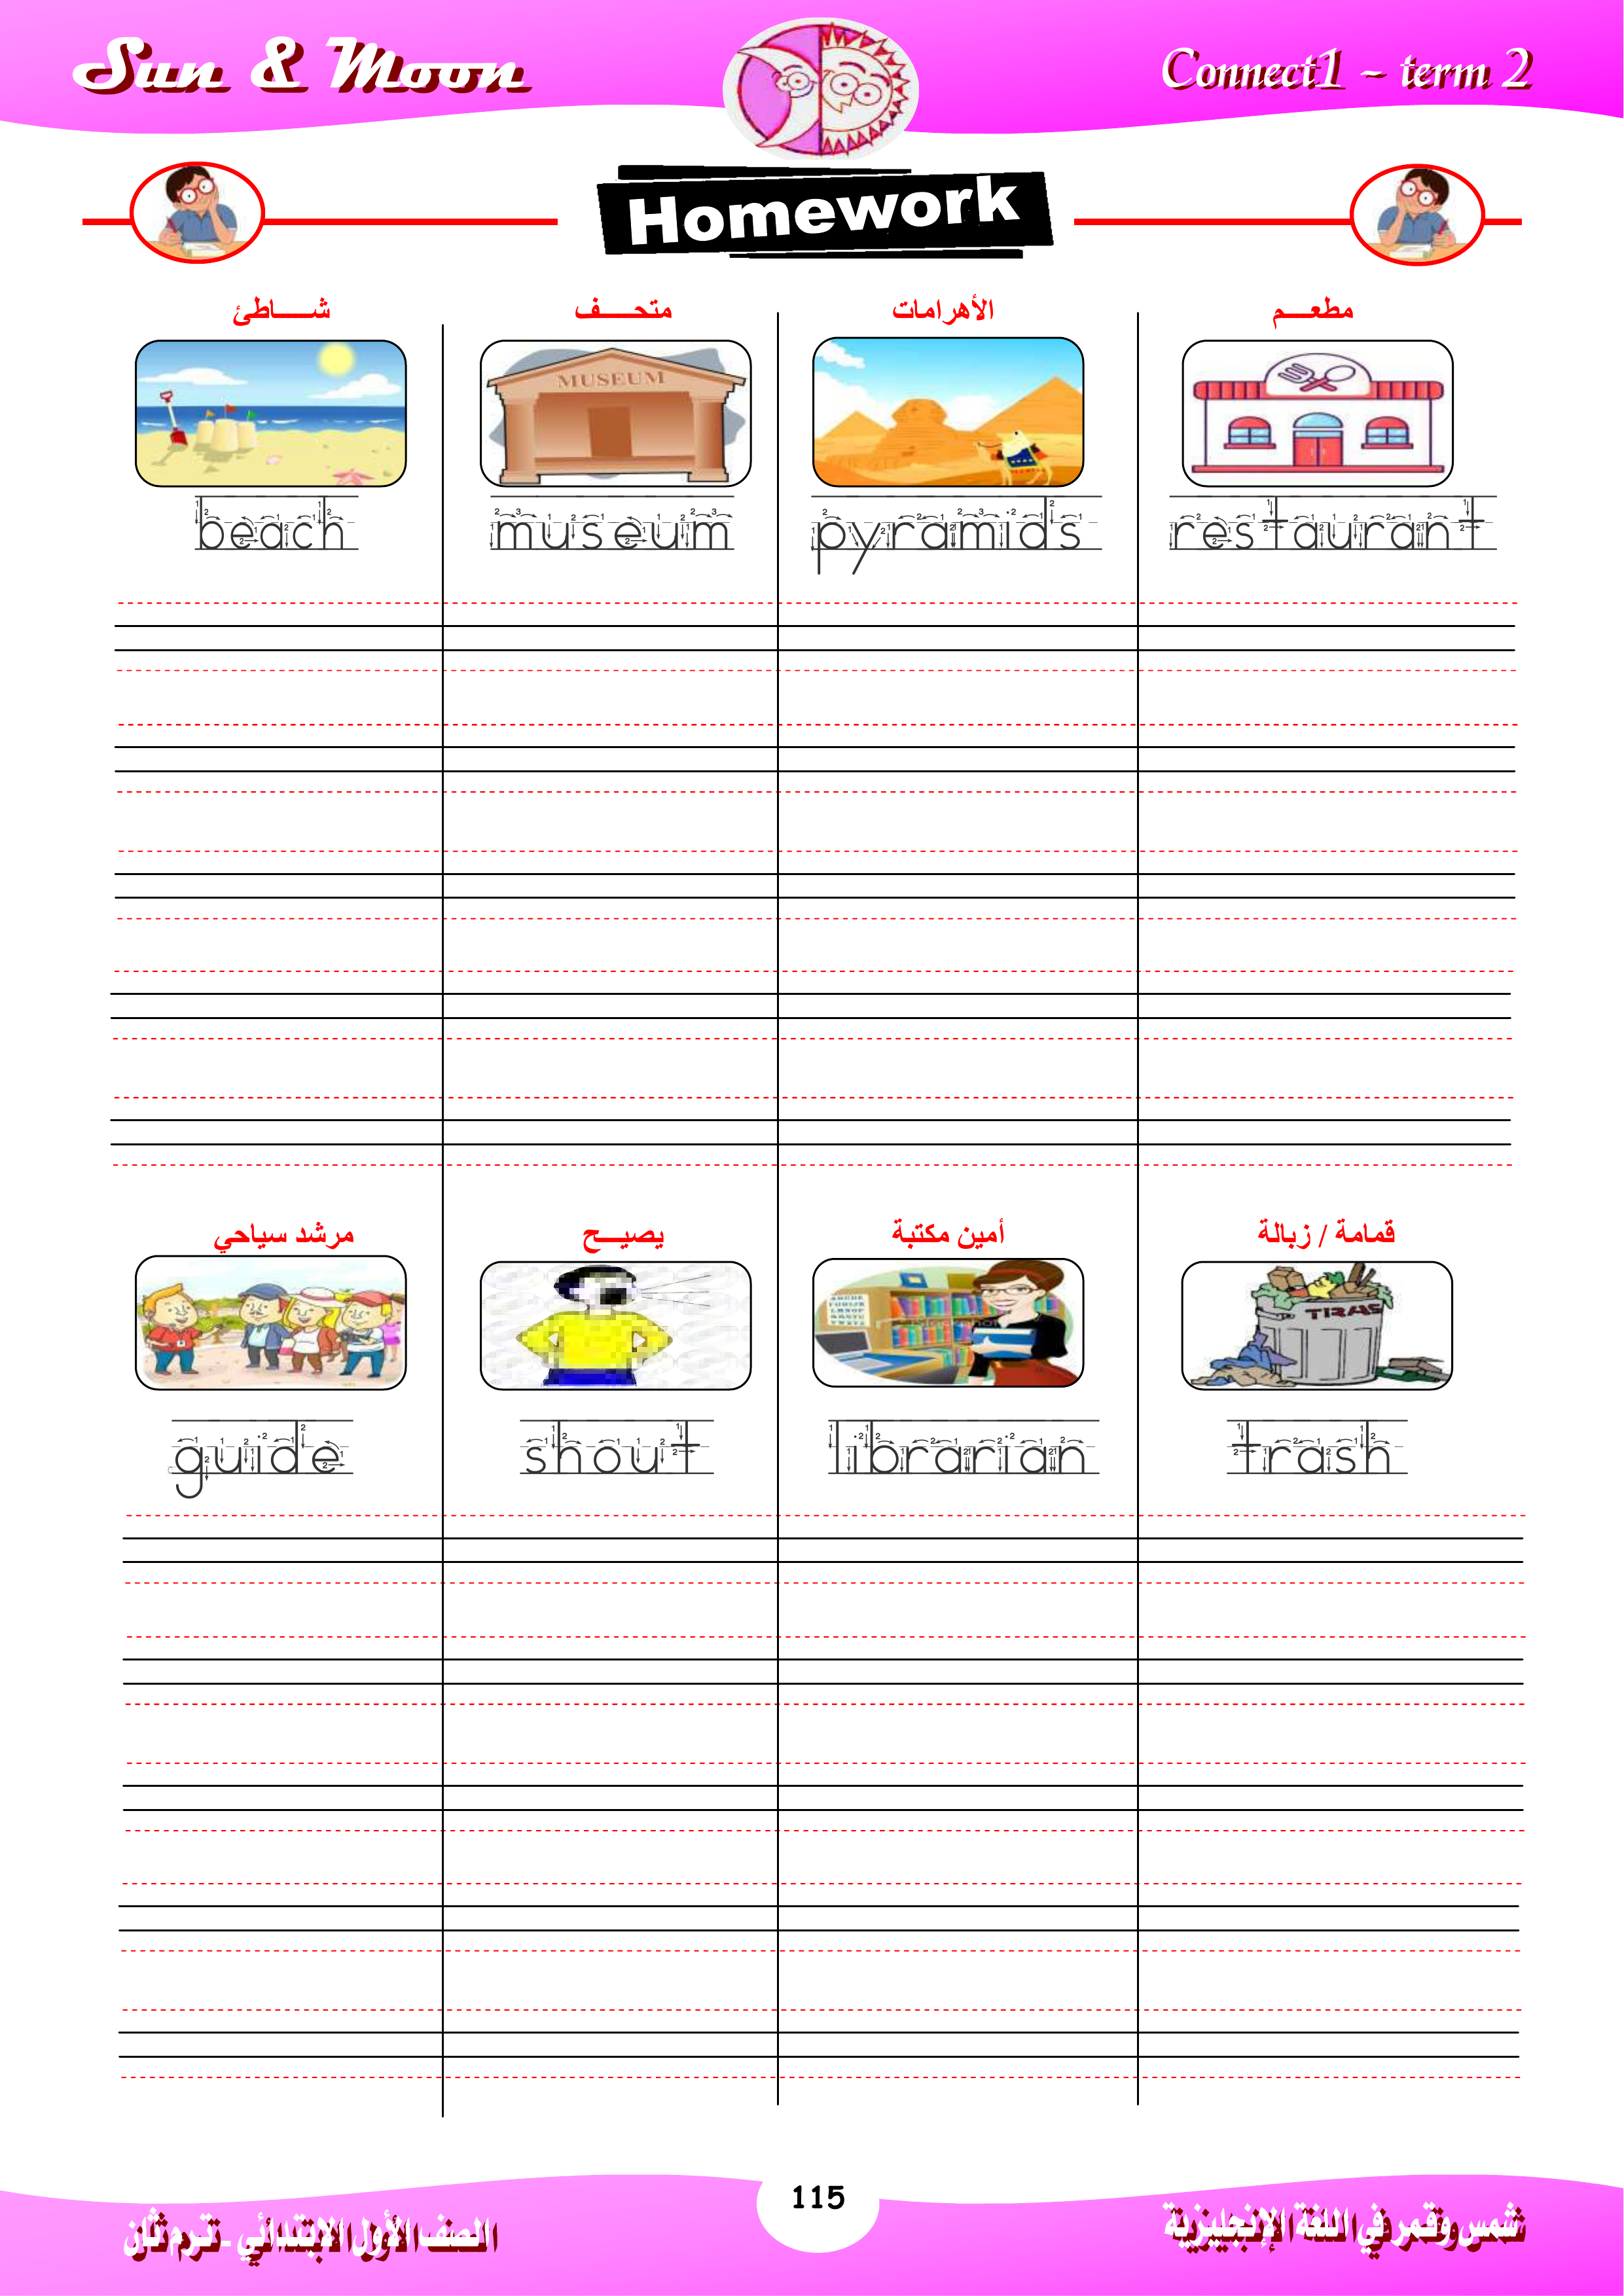 Sun & Moon
Connect1 – term 2
Homework
شـــــاطئ
متحـــــف
الأهرامات
مطعـــم
MUSEUM
beach
museum
pyramids
restaurant
مرشد سياحي
يصيـــح
أمين مكتبة
قمامة / زبالة
guide
shout
librarian
trash
115
الصف الأول الابتدائي - ترم ثان
شمس وقمر في اللغة الإنجليزية